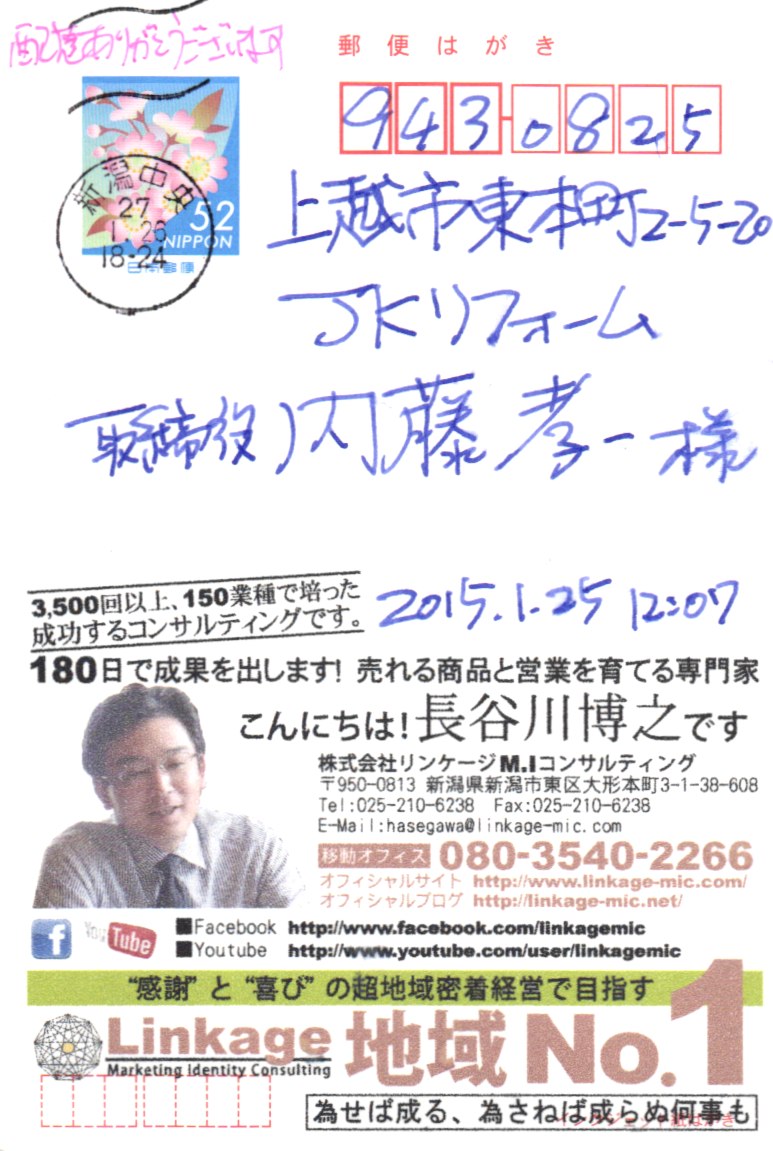 配達ありがとうございます
郵便はがき
943-0825
52
NIPPON
日本郵便
新潟中央
27
1.26
18-24
上越市東本町2-5-20
JKリフォーム
取締役 内藤孝一様
2015.1.25 12:07
3,500回以上、150業種で培った
成功するコンサルティングです。
180日で成果を出します! 売れる商品と営業を育てる専門家
こんにちは!長谷川博之です
株式会社リンケージM.Iコンサルティング
〒950-0813 新潟県新潟市東区大形本町3-1-38-608
Tel:025-210-6238 Fax:025-210-6238
E-Mail:hasegawa@linkage-mic.com
移動オフィス 080-3540-2266
オフィシャルサイト http://www.linkage-mic.com/
オフィシャルブログ http://linkage-mic.net/
f You Tube
■Facebook http://www.facebook.com/linkagemic
■Youtube http://www.youtube.com/user/linkagemic
“感謝”と“喜び”の超地域密着経営で目指す
Linkage 地域No.1
Marketing Identity Consulting
為せば成る、為さねば成らぬ何事も
インクジェット紙はがき